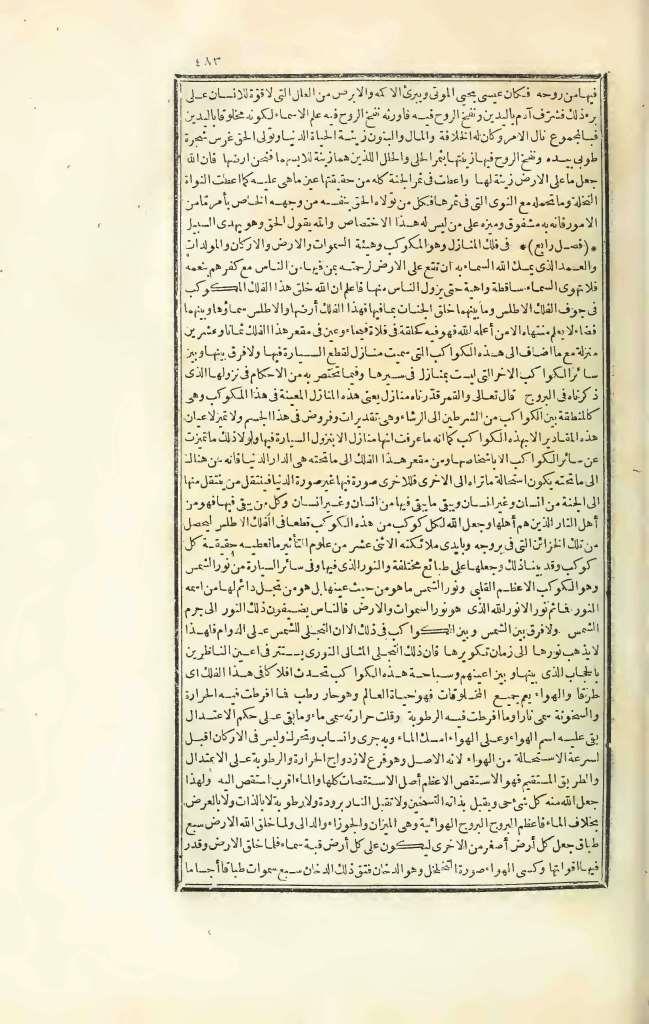 ٤٨٣
فيها من روحه فكان عيسى يحيي الموتى ويبرئ الاكمه والابرص من العلل التي لا قوة للانسان على
برء ذلك فشرف آدم باليدين ونفخ الروح فيه فاورثه نفخ الروح فيه علم الاسماء لكونه مخلوقا باليدين
فبالمجموع نال الامر وكان له الخلافة والمال والبنون زينة الحياة الدنيا وتولى الحق غرس شجرة
طوبى بيده ونفخ الروح فيها زينتها بثمر الحلى والحلل اللذين هما زينة للابسهما فنحن ارضها فان الله
جعل ما على الارض زينة لها واعطت في ثمر الجنة كله من حقيقتها عين ما هي عليه كما اعطت النواة
النخلة وما تحمله مع النوى التي في ثمرها فكل من تولاه الحق بنفسه من وجهه الخاص بأمر ما من
الامور فانه به مشفوف وميزه على من ليس له هذا الاختصاص والله يقول الحق وهو يهدى السبيل
*(فصل رابع)* في فلك المنازل وهو المكوكب وهيئة السموات والارض والاركان والمولدات
والعمد الذى يمسك الله السماء به ان تقع على الارض لرحمته بمن فيها من الناس مع كفرهم بنعمه
فلا تهوى السماء ساقطة واهية حتى يزول الناس منها فاعلم ان الله خلق هذا الفلك المكوكب
في جوف الفلك الاطلس وما بينهما خلق الجنات بما فيها فهذا الفلك أرضها والاطلس سماؤها وبينهما
فضاء لا يعلم منتهاه الا من أعلمه الله فهو فيه كحلقة في فلاة فيحاء وعين في مقعر هذا الفلك ثمانا وعشرين
منزلة مع ما اضاف الى هذه الكواكب التي سميت منازل لقطع السيارة فيها ولا فرق بينها وبين
سائر الكواكب الاخر التي ليست بمنازل في سيرها وفيما تختص به من الاحكام في نزولها الذى
ذكرناه في البروج قال تعالى والقمر قدرناه منازل يعنى هذه المنازل المعينة في هذا المكوكب وهى
كالمنطقة بين الكواكب من الشرطين الى الرشاء وهى تقديرات وفروض في هذا الجسم ولا تميز لاعيان
هذه المقادير الا بهذه الكواكب كما انه ما عرفت انها منازل الا بنزول السيارة فيها ولولا ذلك ما تميزت
عن سائر الكواكب الا باشخاصها ومن مقعر هذا الفلك الى ما تحته هى الدار الدنيا فانه من هنالك
الى ما تحته يكون استحالة ما تراه الى الاخرى فللاخرى صورة فيها غير صورة الدنيا فينتقل من ينتقل منها
الى الجنة من انسان وغير انسان ويبقى ما يبقى فيها من انسان وغير انسان وكل من يبقى فيها فهو من
أهل النار الذين هم أهلها وجعل الله لكل كوكب من هذه الكواكب قطعا في الفلك الاطلس ليحصل
من تلك الخزائن التي في بروجه وبايدى ملائكته الاثنى عشر من علوم التأثير ما تعطيه حقيقة كل
كوكب وقد بينا ذلك وجعلها على طبائع مختلفة والنور الذى فيها وفي سائر السيارة من نور الشمس
وهو الكوكب الاعظم القلبى ونور الشمس ما هو من حيث عينها بل هو من تجل دائم لها من اسمه
النور فما ثم نور الا نور الله الذى هو نور السموات والارض فالناس يضيفون ذلك النور الى جرم
الشمس ولا فرق بين الشمس وبين الكواكب في ذلك الا ان التجلى للشمس على الدوام فلهذا
لا يذهب نورها الى زمان تكويرها فان ذلك التجلى المثالى النورى يستتر فى اعين الناظرين
بالحجاب الذى بينها وبين اعينهم وسباحة هذه الكواكب تحدث افلاكا في هذا الفلك اى
طرقا والهواء يعم جميع المخلوقات فهو حياة العالم وهو حار رطب فما افرطت فيه الحرارة
والسخونة سمى نارا وما افرطت فيه الرطوبة وقلت حرارته سمى ماء وما بقى على حكم الاعتدال
بقى عليه اسم الهواء وعلى الهواء امسك الماء وبه جرى وانساب وتحرك وليس في الاركان اقبل
لسرعة الاستحالة من الهواء لانه الاصل وهو فرع لازدواج الحرارة والرطوبة على الاعتدال
والطريق المستقيم فهو الاستقص الاعظم أصل الاستقصات كلها والماء اقرب استقص اليه ولهذا
جعل الله منه كل شئ حى ويقبل بذاته التسخين ولا تقبل النار برودة ولا رطوبة لا بالذات ولا بالعرض
بخلاف الماء فاعظم البروج البروج الهوائية وهى الميزان والجوزاء والدالى ولما خلق الله الارض سبع
طباق جعل كل أرض أصغر من الاخرى ليكون على كل أرض قبة سماء فلما خلق الارض وقدر
فيها اقواتها وكسى الهواء صورة النحاس وهو الدخان فتق ذلك الدخان سبع سموات طباقا أجساما